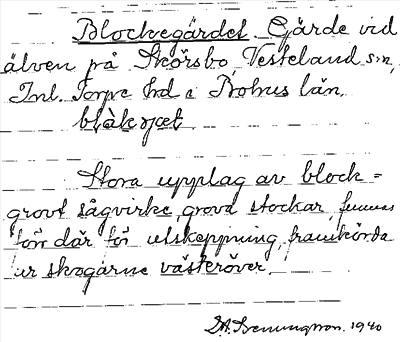 Blockegärdet. Gärde vid
älven på Skörsbo, Västerland sn,
Inl. Torpe hd i Bohus län.
blåkajæt
Stora upplag av block =
grovt sågvirke, grova stockar, funnos
förr där för utskeppning, framkörda
ur skogarne västeröver.
1940